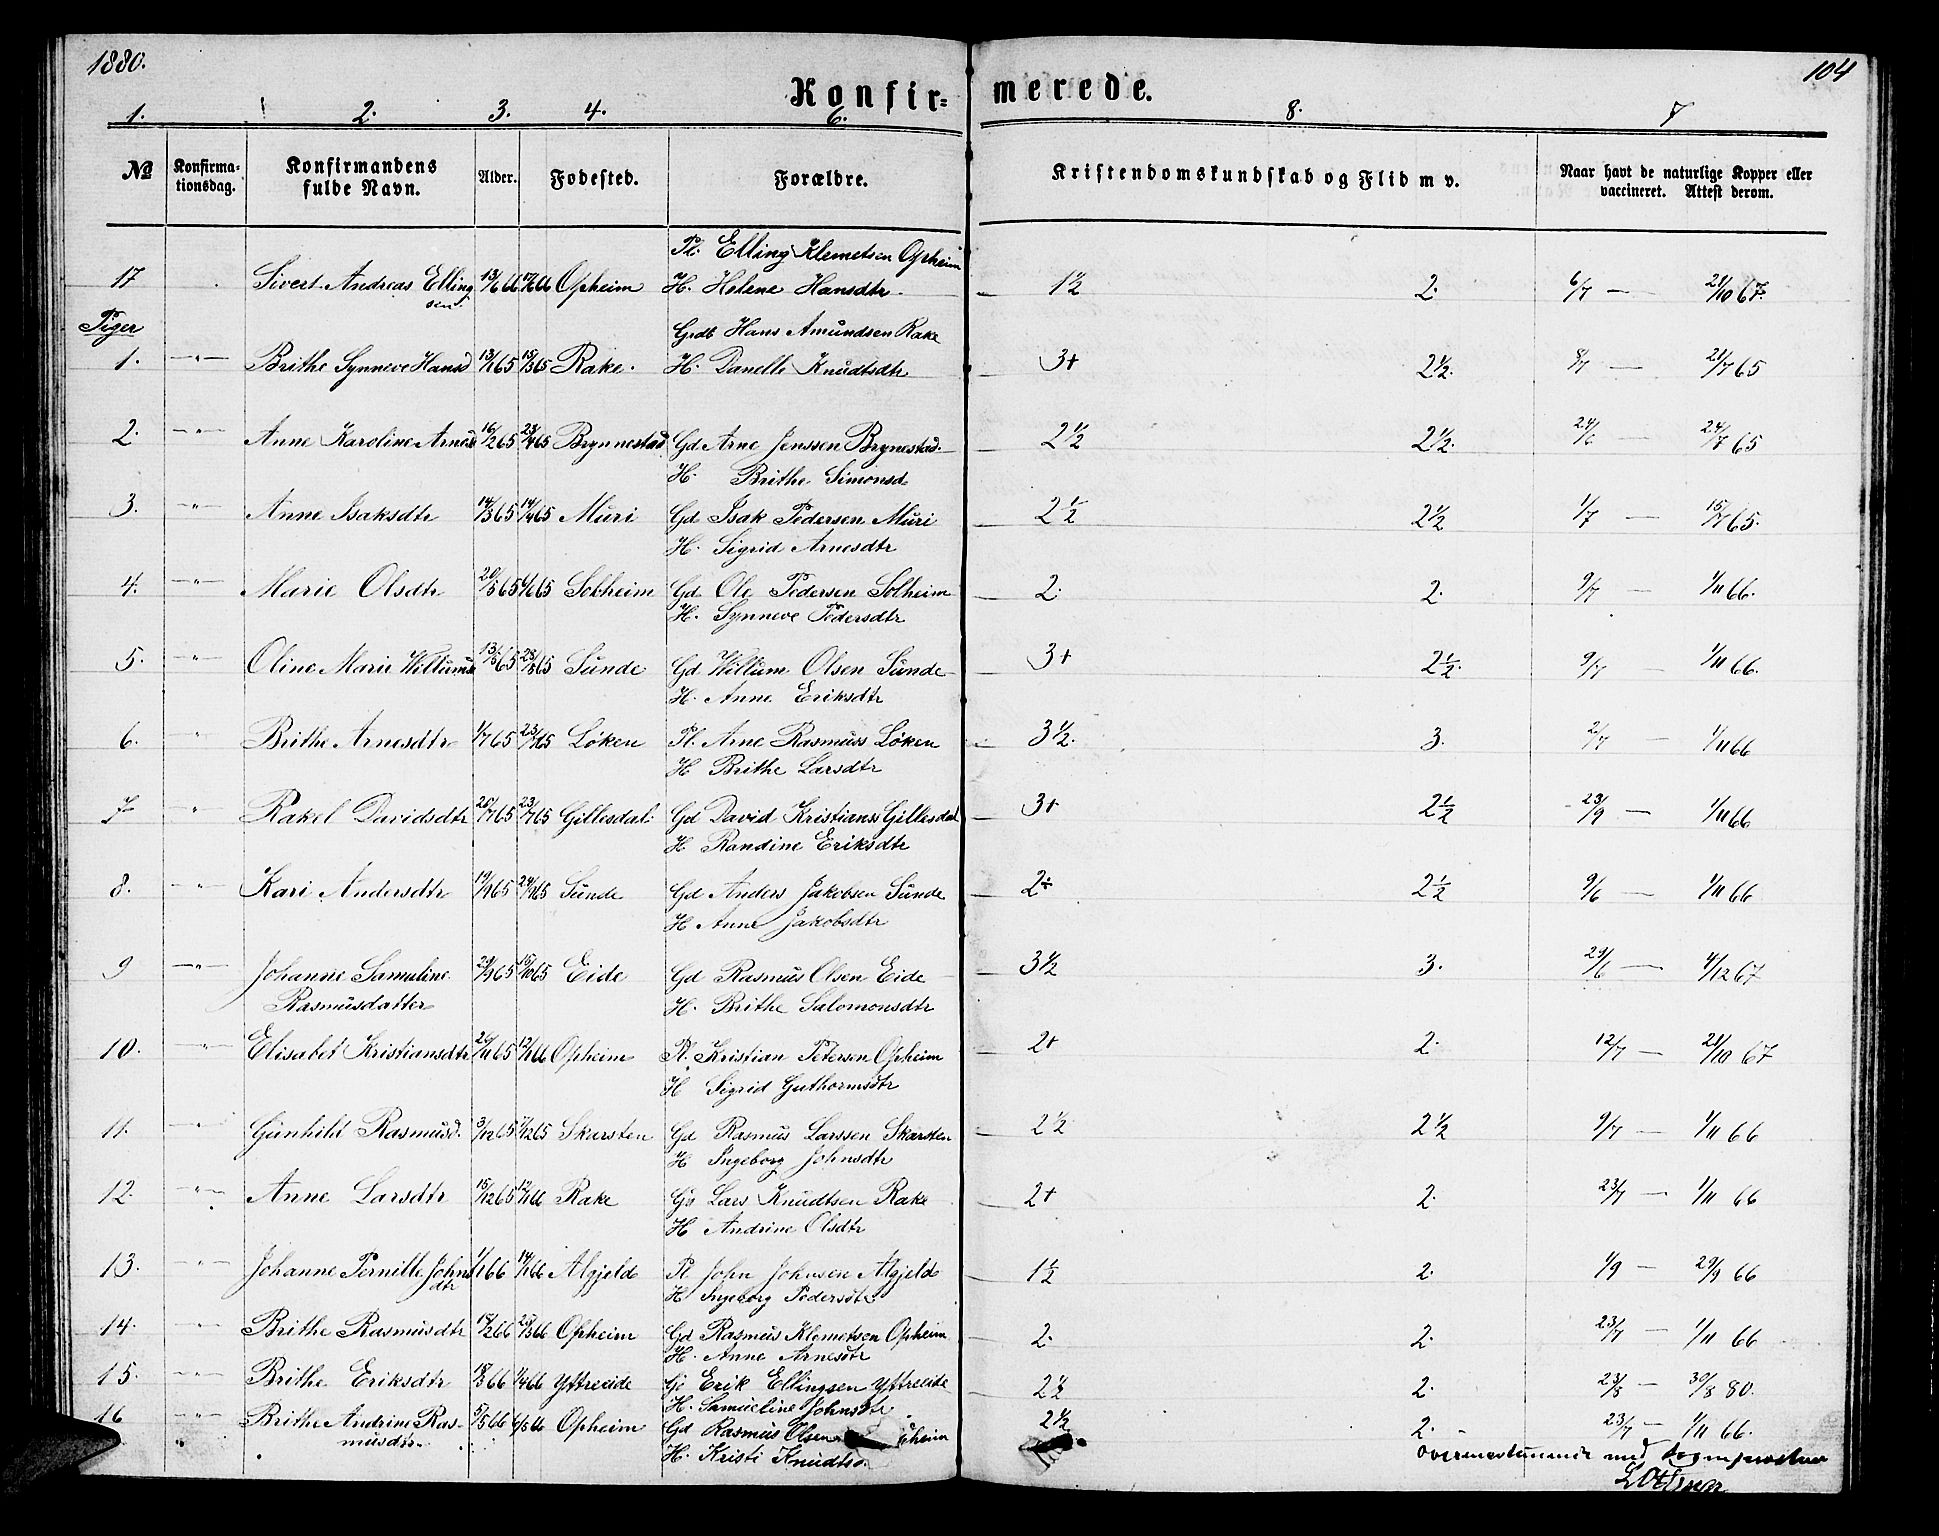 1880.
104
Konfir=
merede.
1. 2. 3. 4. 6. 8. 7
No Konfirmationsdag. Konfirmandens fulde Navn. Alder. Fødested. Forældre. Kristendomskundskab og Flid m v. Naar havt de naturlige Kopper eller vaccineret. Attest derom.
Pl. Elling Klemetsen Opheim
17 Sivert Andreas Elling 13/6 66 Opheim H. Helene Hansdtr 1½ 2. 6/7 — 21/10 67.
sen
Piger
Grdb Hans Amundsen Rake
1. —"— Brithe Synneve Hansd 13/1 65 15/3 65 Rake. H. Danelle Knudtsdtr 3+ 2½. 8/7 — 21/7 65
2. —"— Anne Karoline Arnesd 16/2 65 23/4 65 Brynnestad Gd Arne Jenssen Brynestad. 2½ 2½. 24/6 — 24/7 65
H. Brithe Simonsd
3. —"— Anne Isaksdtr 14/3 65 14/4 65 Muri Gd Isak Pedersen Muri 2½ 2½ 1/7 — 15/7 65.
H. Sigrid Arnesdtr
4. —"— Marie Olsdtr 20/5 65 4/6 65 Solheim Gd Ole Pedersen Solheim 2. 2. 9/7 — 1/11 66.
H. Synneve Pedersdtr
5. —"— Oline Marie Willumsd 13/5 65 28/5 65 Sunde Gd Willum Olsen Sunde 3+ 2½. 9/7 — 1/11 66.
H. Anne Eriksdtr
6. " Brithe Arnesdtr 1/7 65 23/7 65 Løken Pl. Arne Rasmuss Løken 3½. 3. 2/7 — 1/11 66
H Brithe Larsdtr
7 " Rakel Davidsdtr 20/7 65 23/7 65 Gillesdal. Gd David Kristianss Gillesdal 3+ 2½ 23/9 — 1/11 66
H Randine Eriksdtr
8. —"— Kari Andersdtr 19/9 65 24/9 65 Sunde Gd Anders Jakobsen Sunde 2÷ 2½ 9/6 — 1/11 66
H Anne Jakobsdtr
9 —"— Johanne Samuline 29/9 65 15/10 65 Eide Gd Rasmus Olsen Eide 3½ 3. 29/6 — 4/12 67
Rasmusdatter H. Brithe Salomonsdtr
10. —"— Elisabet Kristiansdtr 26/11 65 12/1 66 Opheim Pl. Kristian Petersen Opheim 2+ 2. 12/7 — 21/10 67
H Sigrid Guthormsdtr
11. —"— Gunhild Rasmusd. 3/12 65 /12 65 Skarsten Gd Rasmus Larssen Skarsten 2½ 2½ 9/7 — 1/11 66
H Ingeborg Johnsdtr
12. —"— Anne Larsdtr 15/12 65 12/1 66 Rake Gd Lars Knudtsen Rake 2+ 2. 23/7 — 1/11 66
H Andrine Olsdtr
13. —"— Johanne Pernille Johns 1/1 66 14/1 66 Algjeld Pl John Johnsen Algjeld 1½ 2. 1/9 — 29/9 66
dtr H Ingeborg Pedersdtr
14. —"— Brithe Rasmusdtr 17/2 66 25/3 66 Opheim Gd Rasmus Klemetsen Opheim 2. 2. 23/7 — 1/11 66
H. Anne Arnesdtr
15. —"— Brithe Eriksdtr 18/3 66 1/4 66 Yttreeide Gd Erik Ellingsen Yttreeide 2½ 2. 23/8 — 30/8 80.
H. Samueline Johnsdtr
16 —"— Brithe Andrine Ras- 5/5 66 6/5 66 Opheim Gd Rasmus Olsen heim 2½ 2. 23/7 — 1/11 66.
musdtr. H. Kristi Knudtsd.
overensstemmende med